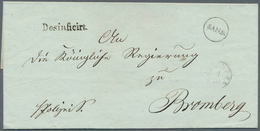 Desinficirt.
An
die Königliche Regierung
zu
Bromberg